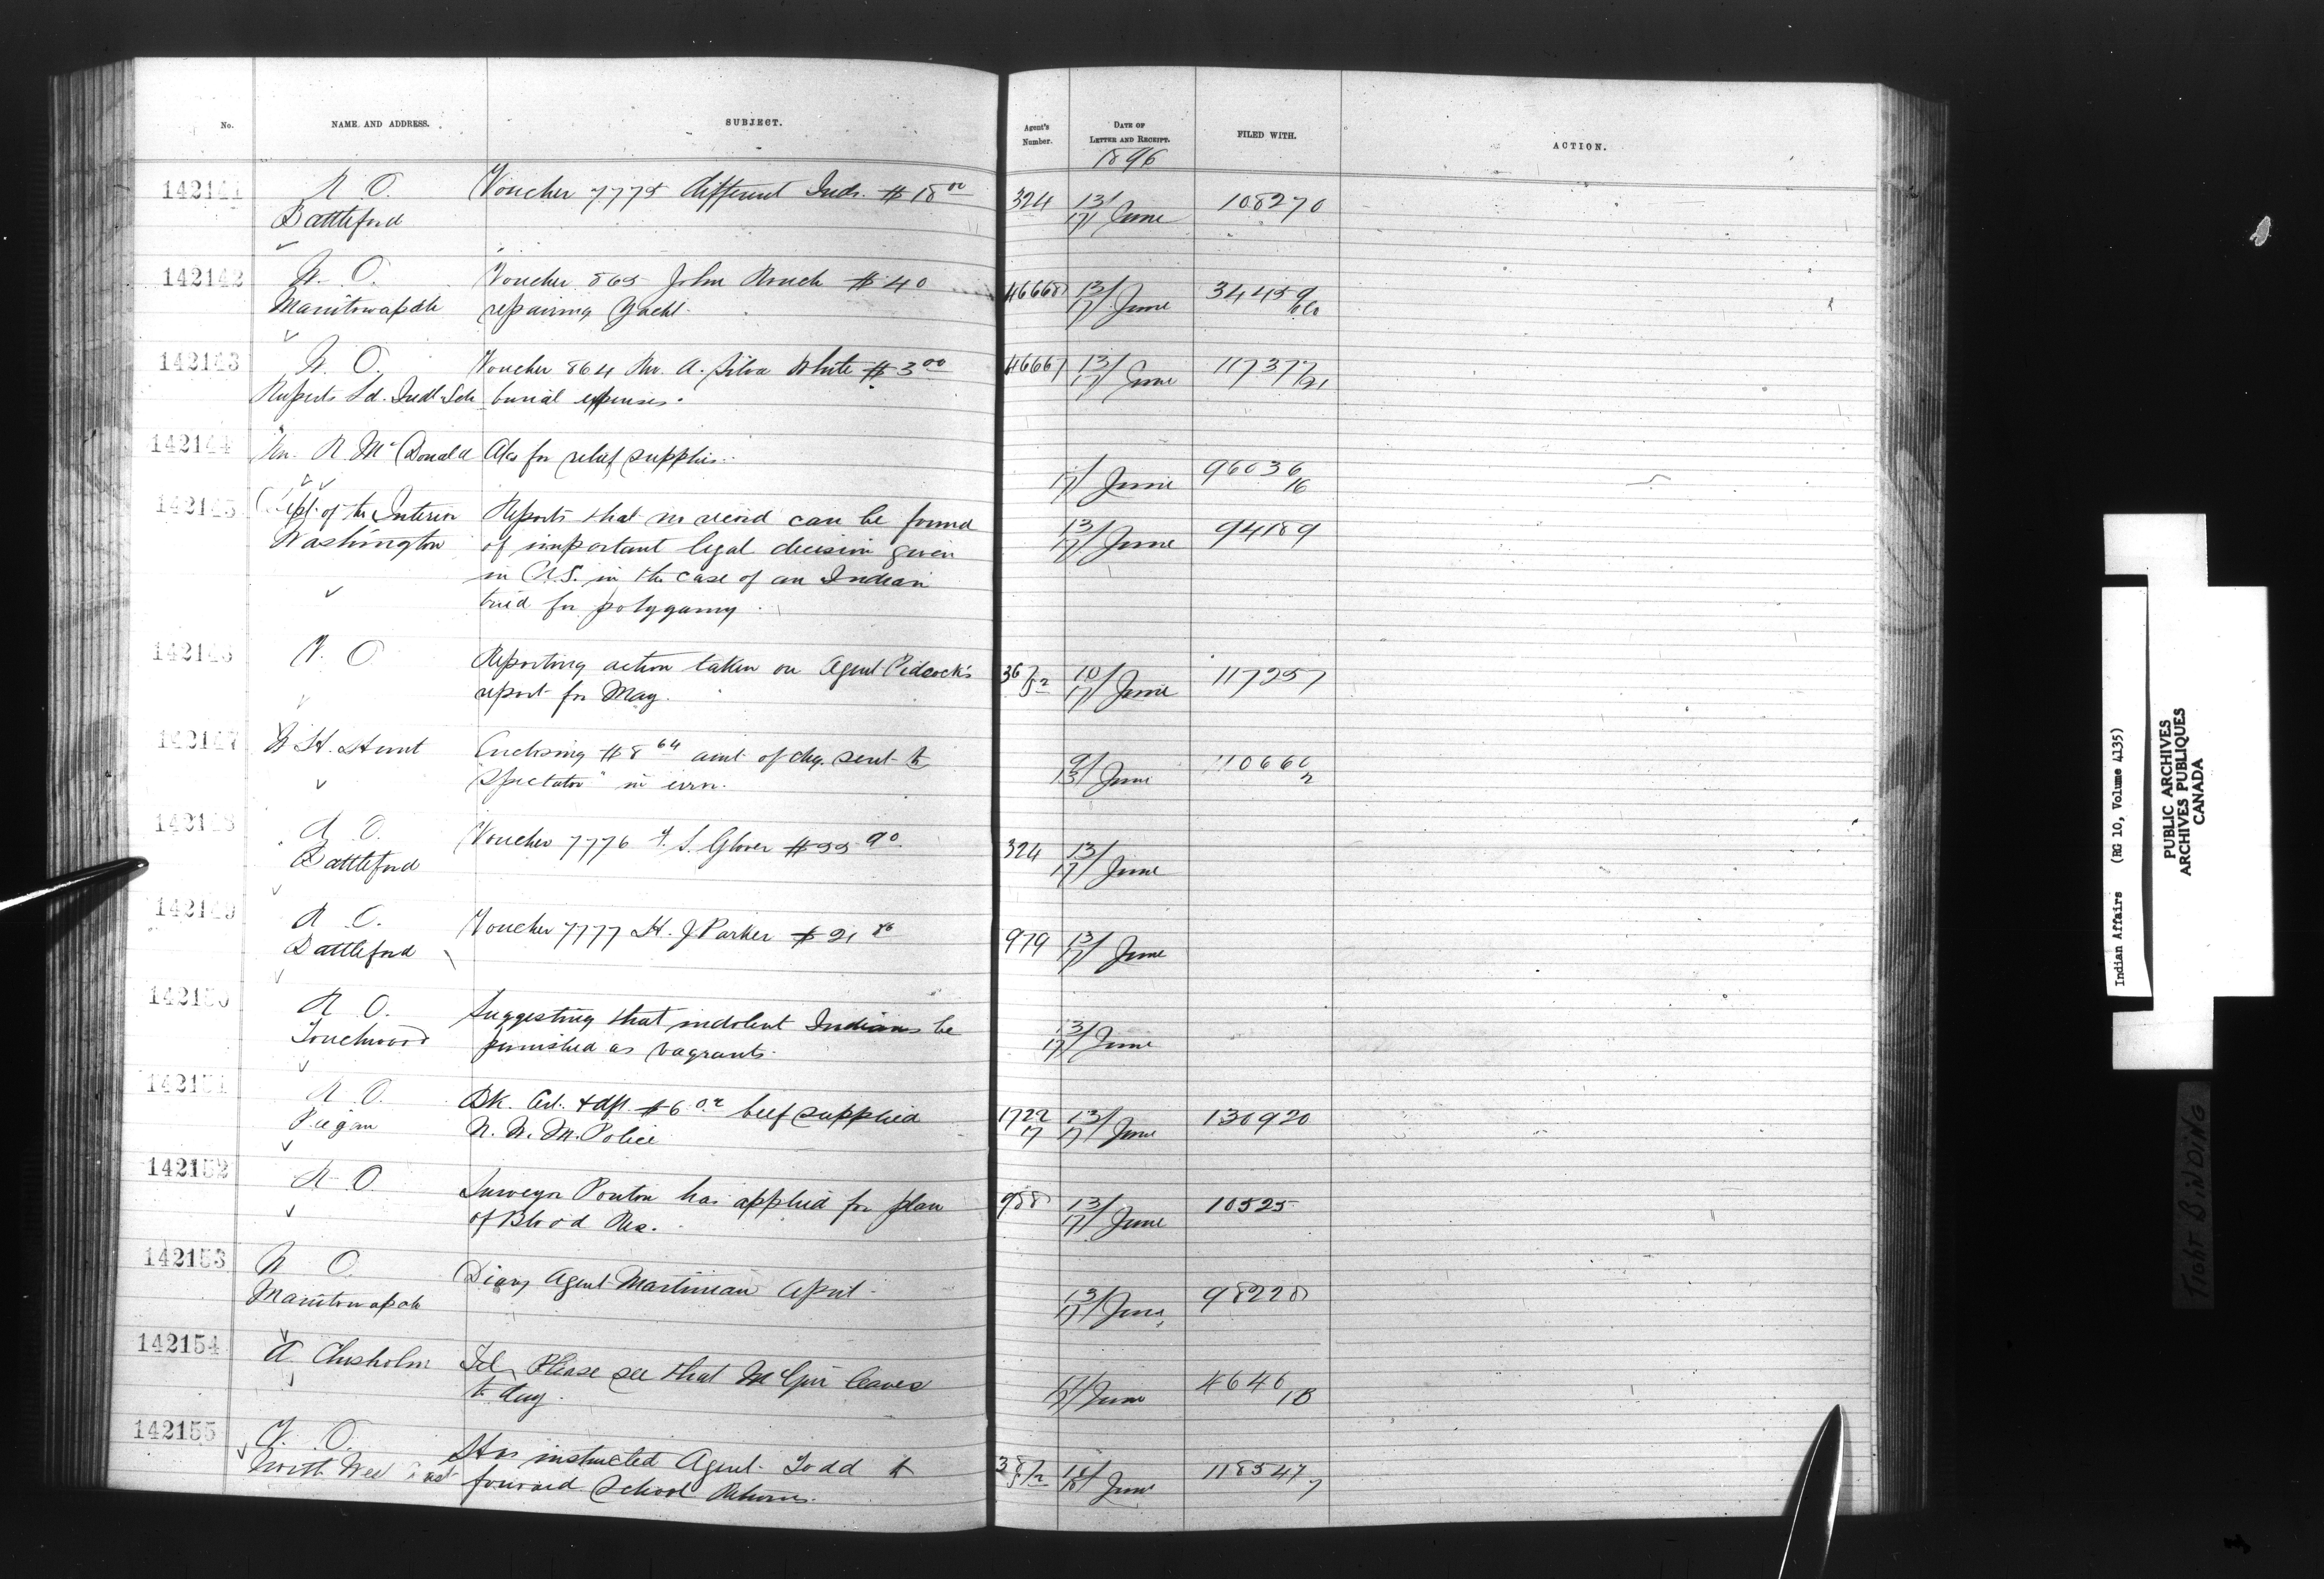 No.
NAME AND ADDRESS.
SUBJECT.
Agent's
Number.
DATE OF
LETTER AND RECEIPT.
FILED WITH.
ACTION.
1896
142141
R O.
Battleford
Voucher 7775 different Inds. $18 00
324
13/
17/ June
108270
142142
W. O.
Manitowapah
Voucher 865 John $40
repairing Yacht.
46668
13/
17/ June
34459
142143
W. O.
Ruperts Ld. Indl Sch
Voucher 864 Rev. A. Silva White $3 00
burial expenses.
46667
13/
17/ June
11737
142144
R McDonald
for relief supplies.
17/ June
96036
16
142145
Dept. of the Interior
Washington
Reports that no record can be found
of important legal decision given
in U.S. in the case of an Indian
tried for polygamy.
13/
17/ June
94189
142146
V. O
Reporting action taken on Agent Pidcock's
report for May.
36/52
10/
17/ June
117257
142147
Hunt
Enclosing $8 64 amt of chq. sent to
"Spectator" in error.
9/
13/ June
110660
2
142148
R O.
Battleford
Voucher 7776 Glover $55 90
324
13/
17/ June
142149
R O.
Battleford
Voucher 7777 H. J Parker $21
979
13/
17/ June
142150
R O.
Touchwood
Suggesting that indolent Indians be
punished as vagrants.
13/
17/ June
142151
R O.
Peigan
Bk. dft $6 02 beef supplied
N. W. M. Police
1722
17
13/
17/ June
130920
142152
R O.
Surveyor Ponton has applied for plan
of Blood Res.
988
13/
17/ June
10525
142153
W O.
Manitowapah
Diary Agent Martineau April.
13/
17/ June
98228
142154
A Chisholm
Tel. Please see that leaves
to day.
17/
17/ June
4646
142155
V. O.
North West Coast
Has instructed Agent Todd to
forward School Returns.
38/52
18/ June
118547
7
Indian Affairs (RG 10, Volume 4135)
PUBLIC ARCHIVES
ARCHIVES PUBLIQUES
CANADA
TIGHT BINDING